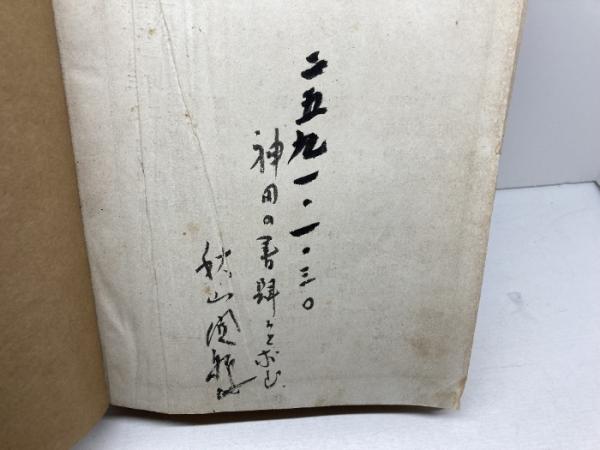 二五九一・一・三〇
神田の書肆に求む
秋山